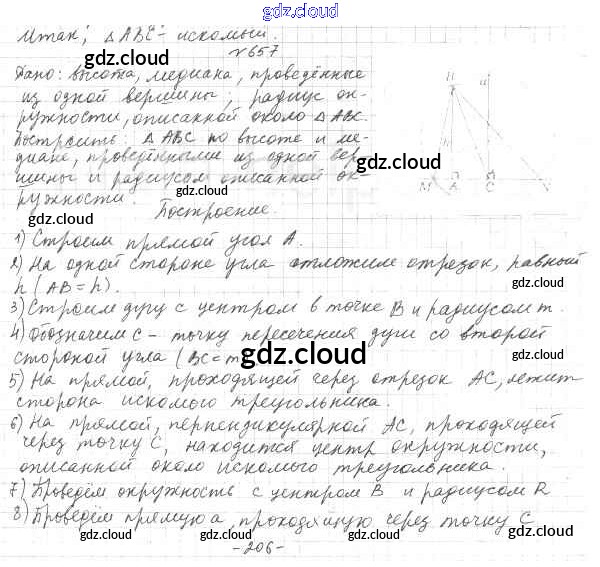 gdz.cloud
Итак; △ABC - искомый.
gdz.cloud
№657
gdz.cloud
Дано: высота, медиана, проведённые
из одной вершины; радиус ок-
ружности, описанной около △ABC.
gdz.cloud
Построить: △ABC по высоте и ме-
диане, проведёнными из одной вер-
gdz.cloud
шины и радиусом описанной ок-
ружности.
B
a
M A C N
Построение.
1) Строим прямой угол A.
2) На одной стороне угла отложим отрезок, равный
h (AB = h).
3) Строим дугу с центром в точке B и радиусом m.
4) Обозначим C - точку пересечения дуги со второй
стороной угла (BC = m
gdz.cloud
5) На прямой, проходящей через отрезок AC, лежит
сторона искомого треугольника.
6) На прямой, перпендикулярной AC, проходящей
через точку C, находится центр окружности,
описанной около искомого треугольника.
gdz.cloud
7) Проведём окружность с центром B и радиусом R
8) Проведём прямую a, проходящую через точку C
gdz.cloud
-206-